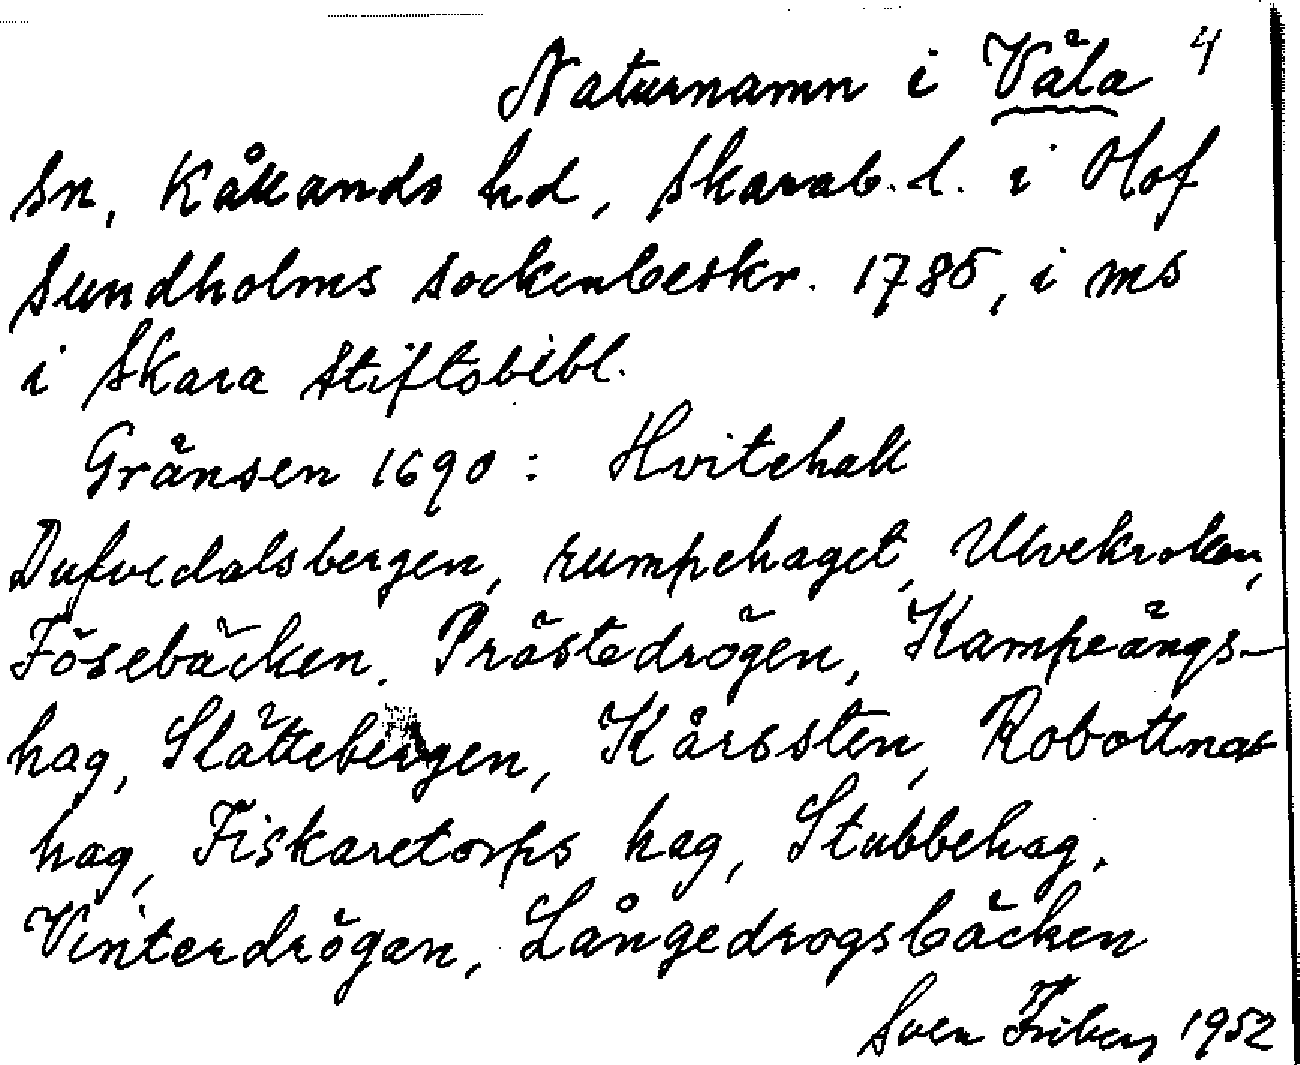 Naturnamn i Väla 4
sn, Kåkands hd, Skarab. l. i Olof
Sundholms sockenbeskr. 1785, i ms
i Skara stiftsbibl.
Gränsen 1690: Hvitehall
Dufvedalsbergen, rumpehaget, Ulvekroken,
Fösebäcken. Prästedrögen, Kampeängs-
hag, Slättebergen, Kårssten, Robottnas
hag, Fiskaretorps hag, Stubbehag.
Vinterdrögen, Långedrogsbäcken
Sven Friberg 1952